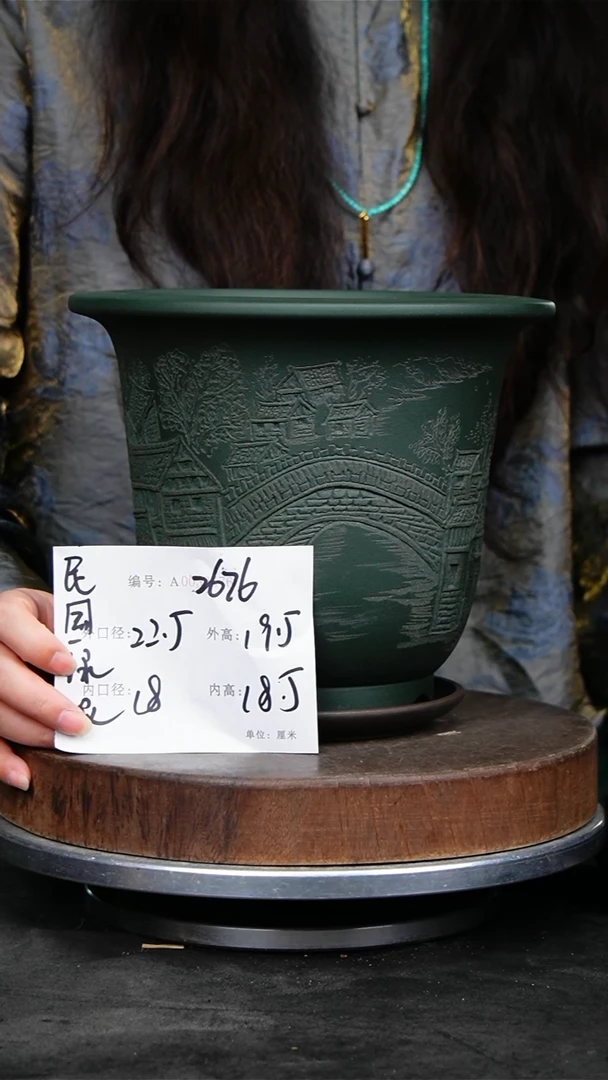 民国绿泥
编号: A002676
外口径: 22.5 外高: 19.5
内口径: 18 内高: 18.5
单位: 厘米